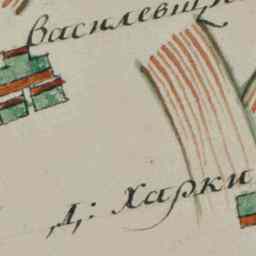 Василевщи
Д: Харки